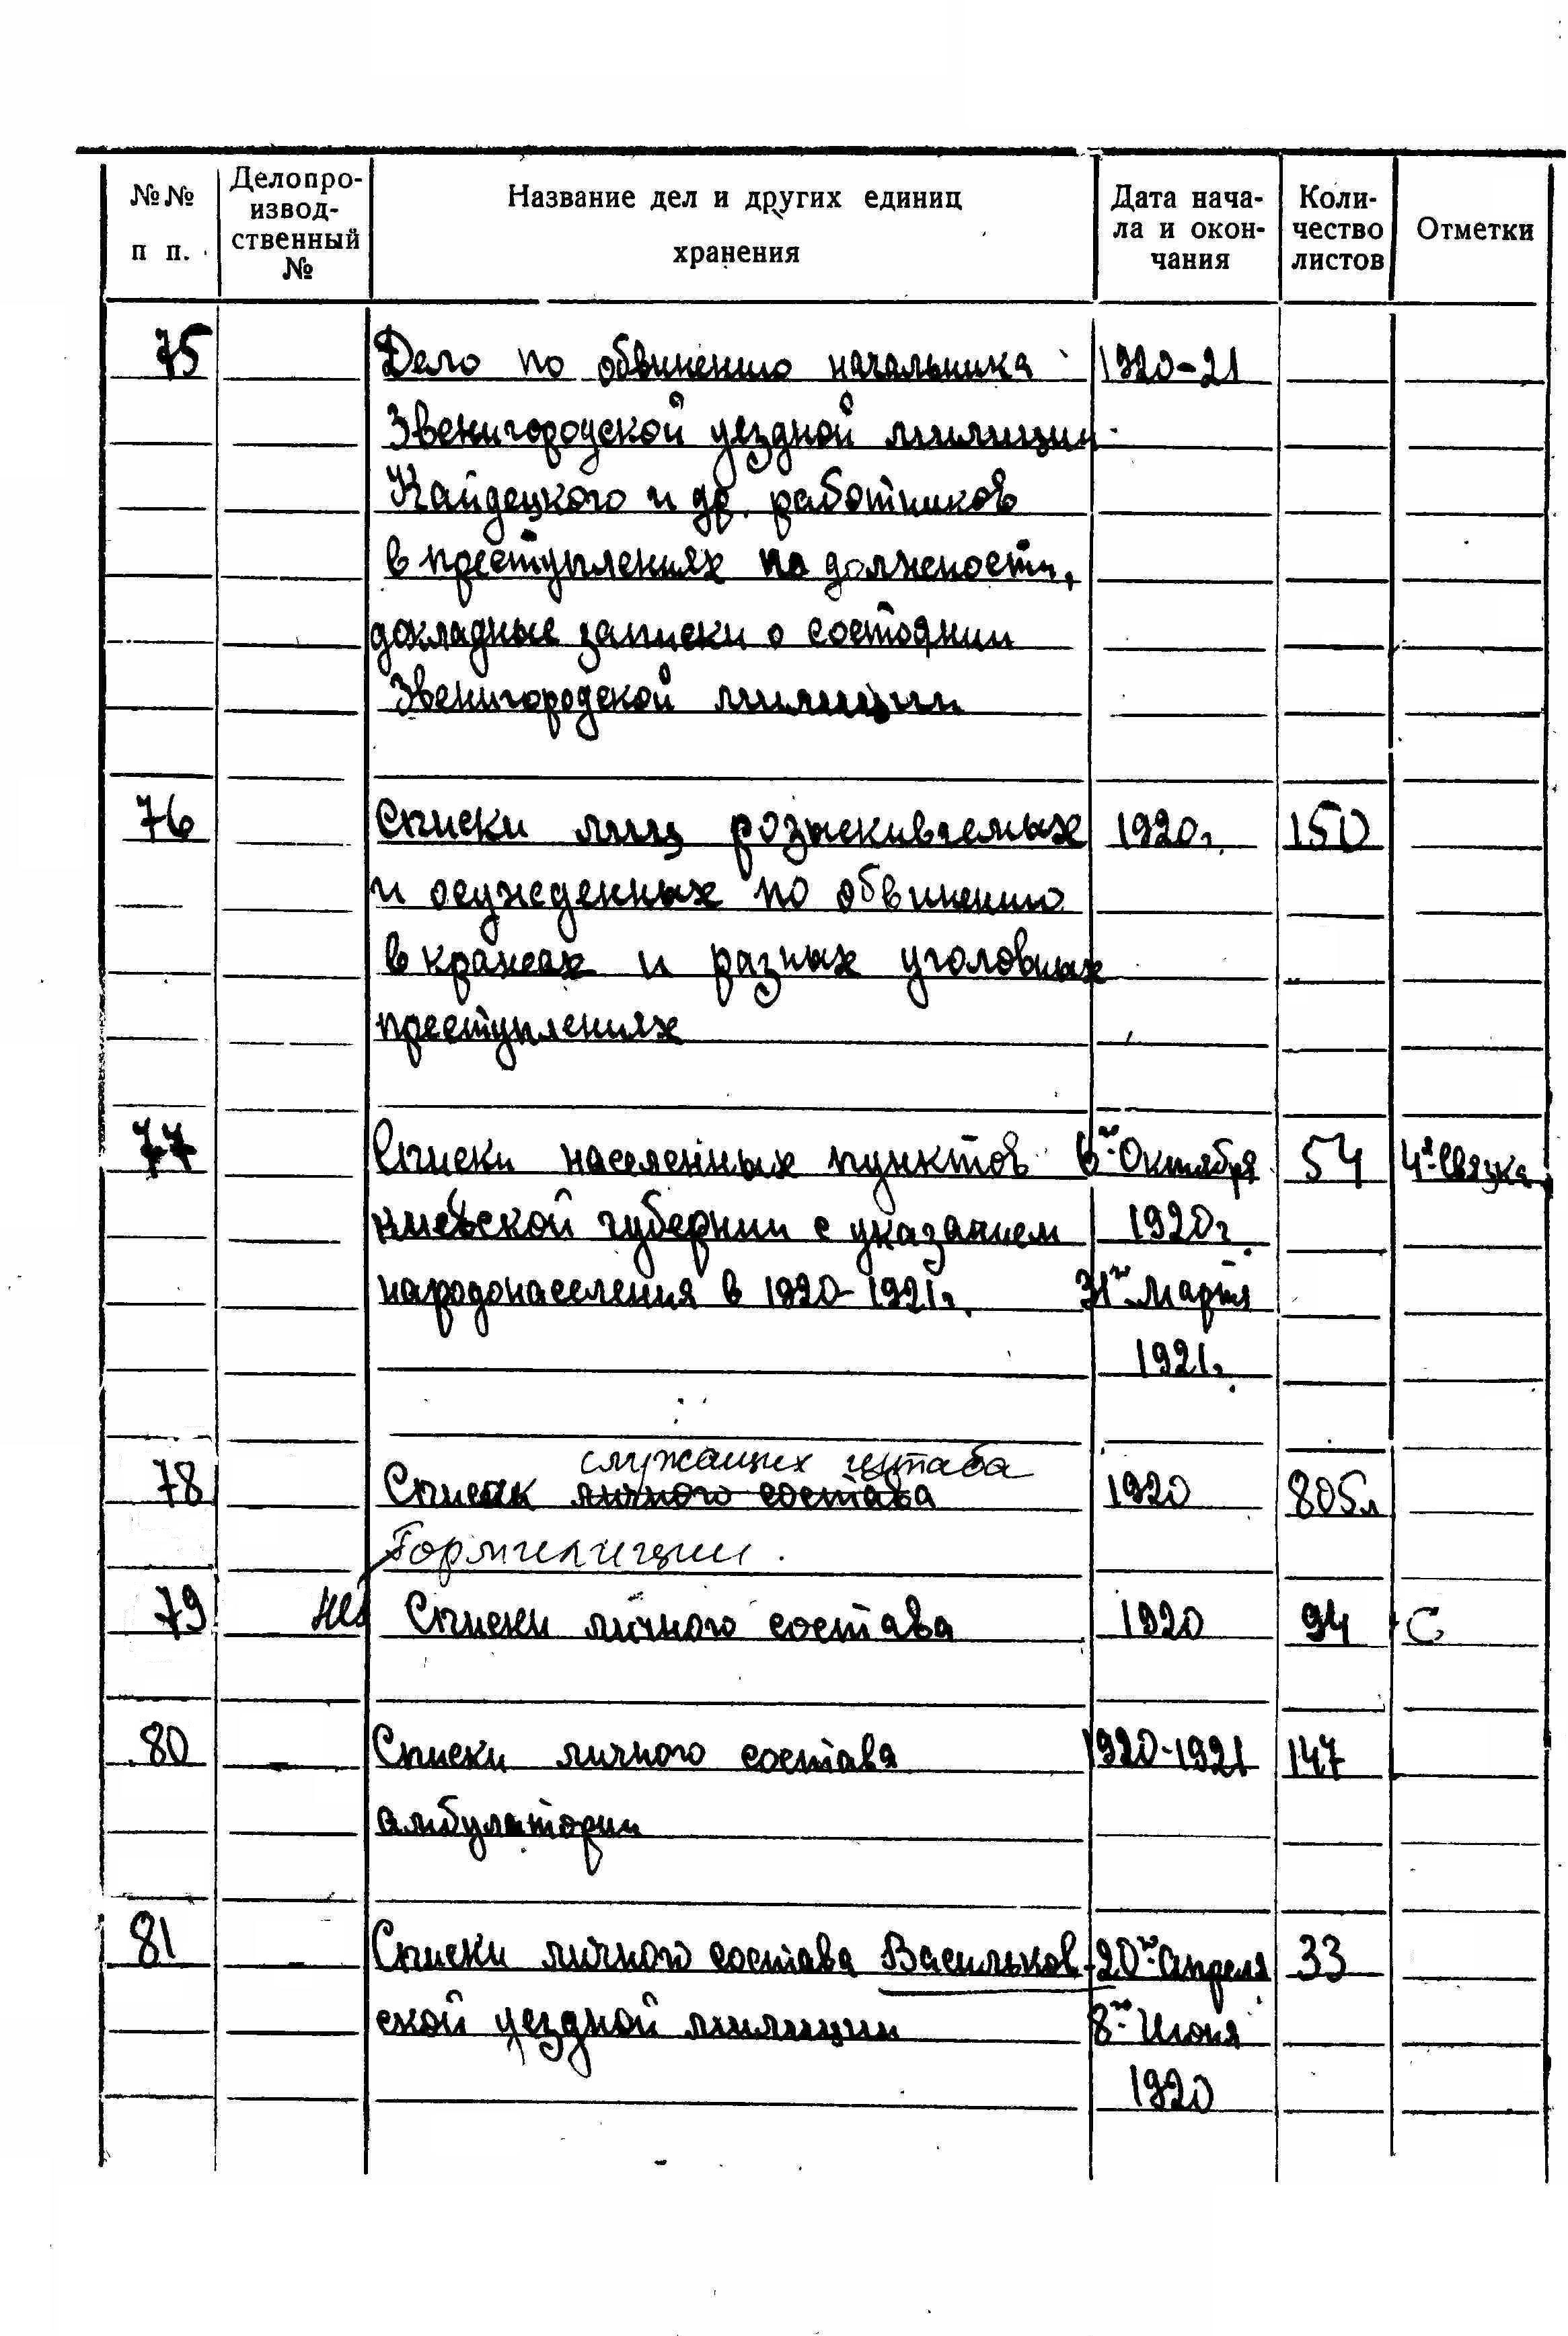 №№ п п. Делопро- извод- ственный № Название дел и других единиц хранения Дата нача- ла и окон- чания Коли- чество листов Отметки
75 Дело по обвинению начальника 1920-21
Звенигородской уездной милиции
Кайдецкого и др. работников
в преступлениях по должности,
докладные записки о состоянии
Звенигородской милиции
76 Списки лиц розыскиваемых 1920г. 150
и осужденных по обвинению
в кражах и разных уголовных
преступлениях
77 Списки населенных пунктов 6го Октября 54 4я Связка
Киевской губернии с указанием 1920г
народонаселения в 1920-1921г. 31го Марта
1921г.
служащих штаба
78 Список личного состава 1920 805л
Гормилиции.
79 Списки личного состава 1920 94 С
80 Списки личного состава 1920-1921 147
амбулатории
81 Списки личного состава Васильков- 20го Апреля 33
ской уездной милиции 8го Июня
1920